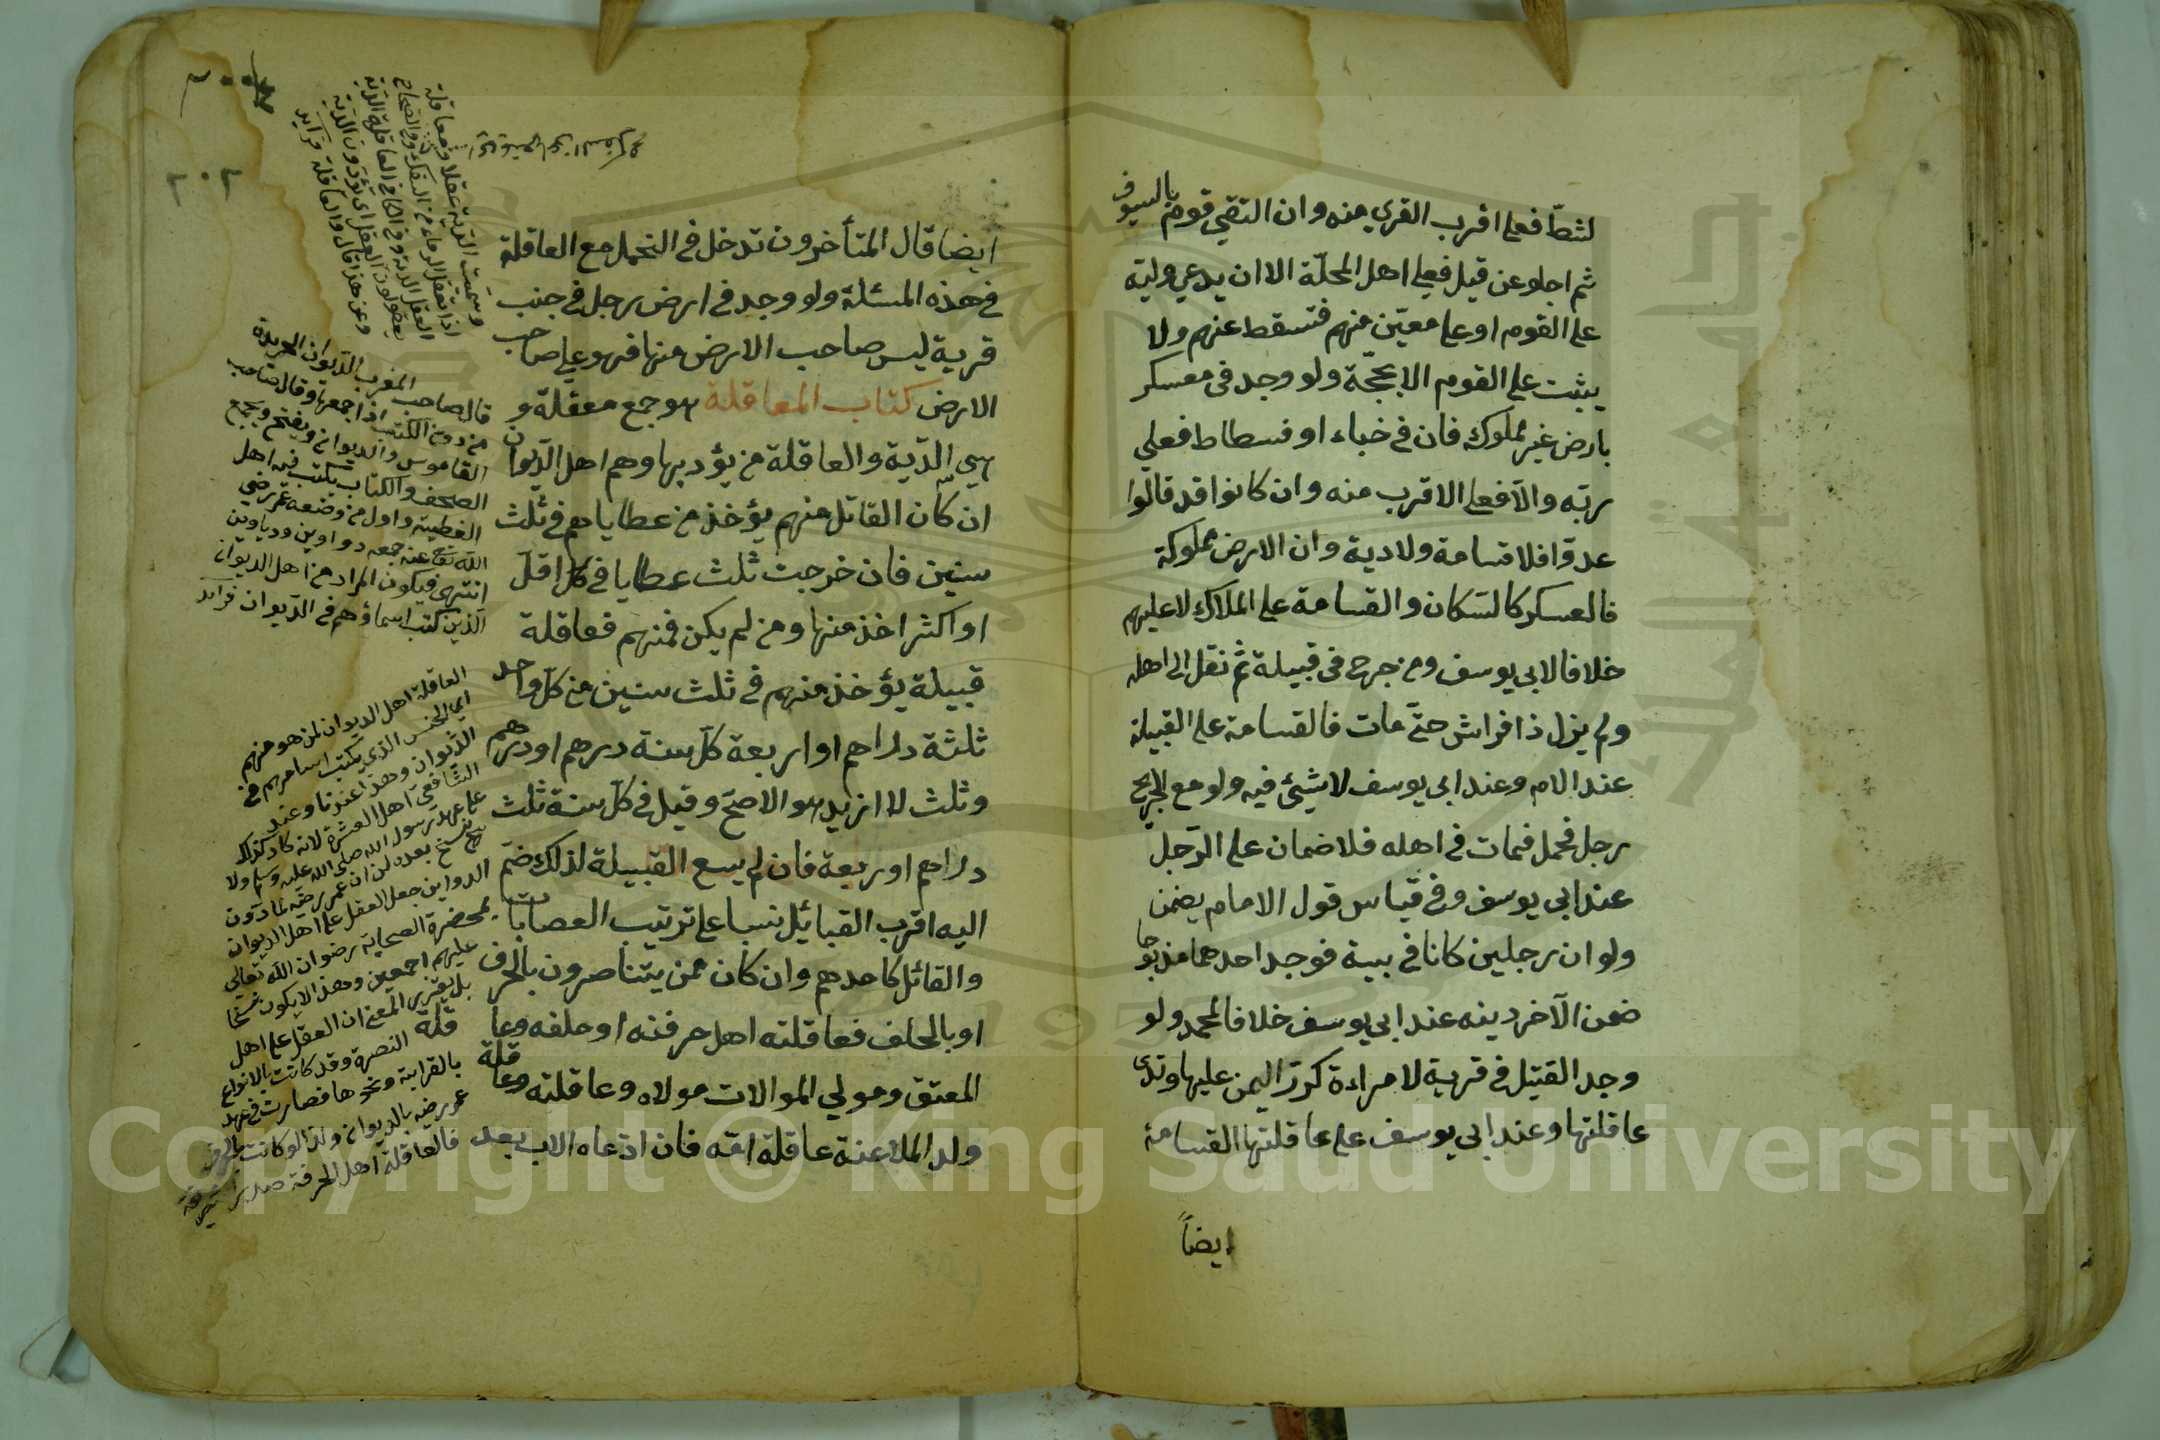 لشطّ فعلى اقرب القرى منه وان التقى قوم بالسيوف
ثم اجلو عن قتيل فعلى اهل المحلّة الا ان يدعى وليّه
على القوم او على معيّن منهم فتسقط عنهم ولا
يثبت على القوم الا بحجّة ولو وجد فى معسكر
بارض غير مملوكه فان فى خباء او فسطاط فعلى
ربّه والّا فعلى الاقرب منه وان كانوا قد قالوا
عدوّا فلا قسامة ولا دية وان الارض مملوكة
فالعسكر كالسّكان والقسامة على الملاك لا عليهم
خلافا لابى يوسف ومن جرح فى قبيلة ثم نقل الى اهله
ولم يزل ذا فراش حتّى مات فالقسامة على القبيلة
عند الامام وعند ابى يوسف لا شيئ فيه ولو مع الجريح
رجل فحمل فمات فى اهله فلا ضمان على الرّجل
عند ابى يوسف وفى قياس قول الامام يضمن
ولو ان رجلين كانا فى بيت فوجد احدهما مذبوحا
ضمن الآخر ديته عند ابى يوسف خلافا لمحمد ولو
وجد القتيل فى قرية لامراءة كرّر اليمين عليها وتدى
عاقلتها وعند ابى يوسف على عاقلتها القسامة
ايضاً
٢٠٢
ايضا قال المتأخرون تدخل فى التحمل مع العاقلة
فى هذه المسئلة ولو وجد فى ارض رجل فى جنب
قرية ليس صاحب الارض منها فهو على صاحب
الارض كتاب المعاقلة هو جمع معقلة و
هى الدّية والعاقلة من يؤديها وهم اهل الدّيوان
ان كان القاتل منهم يؤخذ من عطاياهم فى ثلث
سنين فان خرجت ثلث عطايا فى كل اقلّ
او اكثر اخذ منها ومن لم يكن منهم فعاقلة
قبيلة يؤخذ منهم فى ثلث سنين من كلّ واحد
ثلثة دراهم او اربعة كلّ سنة درهم او درهم
وثلث لا ازيد هو الاصحّ وقيل فى كلّ سنة ثلث
دراهم او ربعة فان لم يسع القبيلة لذلك ضمّ
اليه اقرب القبائل نسبا على ترتيب العصابات
والقاتل كاحدهم وان كان ممن يتناصرون بالحرف
او بالحلف فعاقلته اهل حرفته او حلفه وعاقلة
المعتق ومولى الموالات مولاه وعاقلته وعاقلة
ولد الملاعنة عاقلة امّه فان ادعاه الاب بعد
وسمّيت الدّية عقلا ومعاقلة
قال صاحب المغرب الدّيوان الجريدة
من دوّن الكتب اذا جمعها وقال صاحب
القاموس والدّيوان ويفتح ويجمع
الصحف والكتاب يكتب فيه اهل
العطية واول من وضعه عمر رضى
الله تعالى عنه جمعه دواوين ودياوين
انتهى فيكون المراد من اهل الديوان
الّذين كتب اسماؤهم فى الدّيوان فرائد
العاقلة اهل الديوان لمن هو منهم
اى الجنس الذى يكتب اسامهم فى
الدّيوان وهذا عندنا وعند
الشّافعى اهل العشرة لانه كان كذلك
على عهد رسول الله صلى الله عليه وسلم ولا
نسخ بعده لنا ان عمر رضه لما دوّن
الدواوين جعل العقل على اهل الديوان
بمحضرة الصحابة رضوان الله تعالى
عليهم اجمعين وهذا لا يكون نسخا
بل تقرير المعنى ان العقل على اهل
النصرة وقد كانت بالانواع
بالقرابة ونحوها فصارت فى عهد
عمر رضه بالديوان ولذا لو كانت بالحرفة
فالعاقلة اهل الحرفة
Copyright © King Saud University
1957